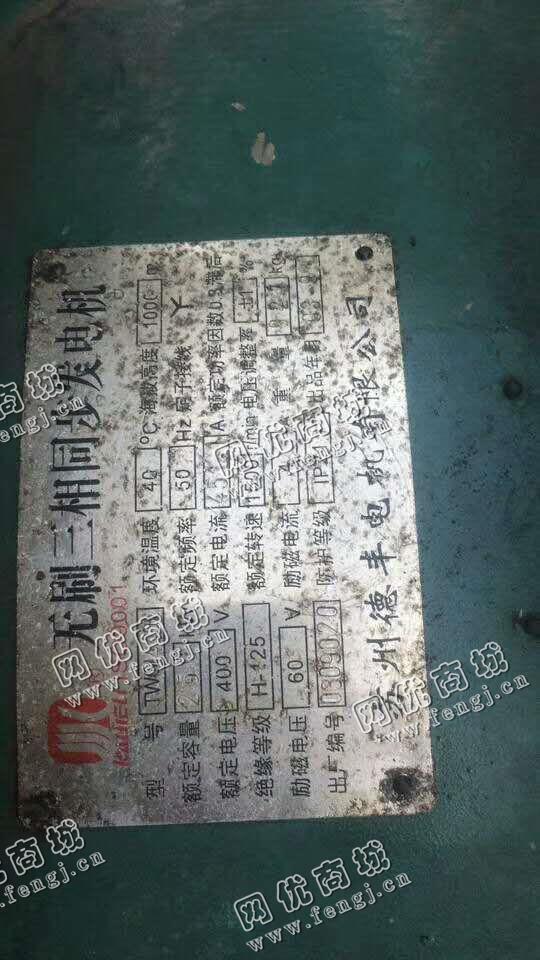 无刷三相同步发电机
Kaijieli
型号 TW 环境温度 40 °C 海拔高度 1000 m
额定容量 额定频率 50 Hz 定子接线 Y
额定电压 400 V 额定电流 A 额定功率因数 0.8 滞后
绝缘等级 H-125 额定转速 1500 r/min 电压调整率 ±1 %
励磁电压 60 V 励磁电流 A 重量 921 kg
出厂编号 0309020 防护等级 IP 出品年月
州德丰电机有限公司
网优商城
www.fengj.cn
网优商城
www.fengj.cn
网优商城
www.fengj.cn
网优商城
www.fengj.cn
网优商城
www.fengj.cn